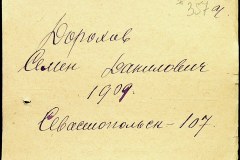 357
Дорохов
Семен Данилович
1909.
Севастопольск-107